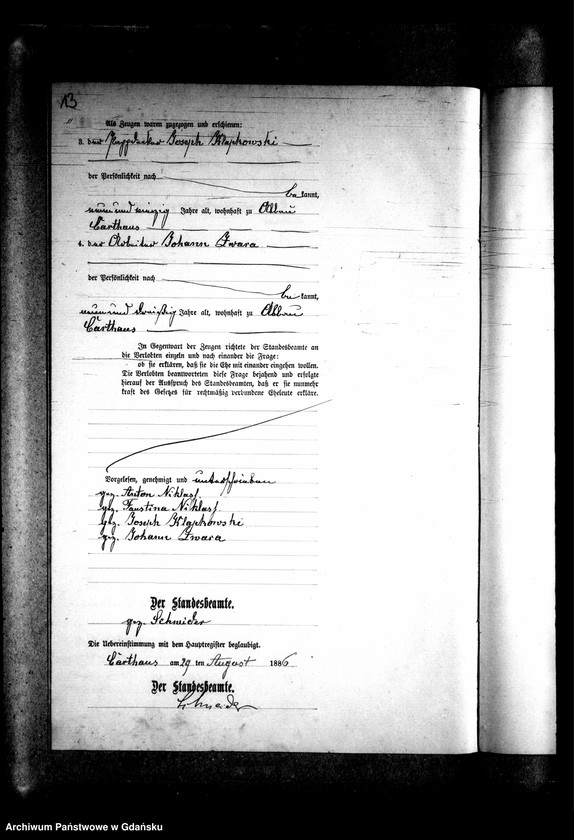 13
Als Zeugen waren zugezogen und erschienen:
3. der Joseph Klapkowski
der Persönlichkeit nach
be kannt,
neun und Jahre alt, wohnhaft zu Abbau
Carthaus
4. der Arbeiter Johann Zwara
der Persönlichkeit nach
be kannt,
neun und dreißig Jahre alt, wohnhaft zu Abbau
Carthaus
In Gegenwart der Zeugen richtete der Standesbeamte an
die Verlobten einzeln und nach einander die Frage:
ob sie erklären, daß sie die Ehe mit einander eingehen wollen.
Die Verlobten beantworteten diese Frage bejahend und erfolgte
hierauf der Ausspruch des Standesbeamten, daß er sie nunmehr
kraft des Gesetzes für rechtmäßig verbundene Eheleute erkläre.
Vorgelesen, genehmigt und unterschrieben
gez. Anton Niklas
gez. Faustina Niklas
gez. Joseph Klapkowski
gez. Johann Zwara
Der Standesbeamte.
gez. Schneider
Die Uebereinstimmung mit dem Hauptregister beglaubigt.
Carthaus am 29 ten August 1886
Der Standesbeamte.
Schneider
Archiwum Państwowe w Gdańsku